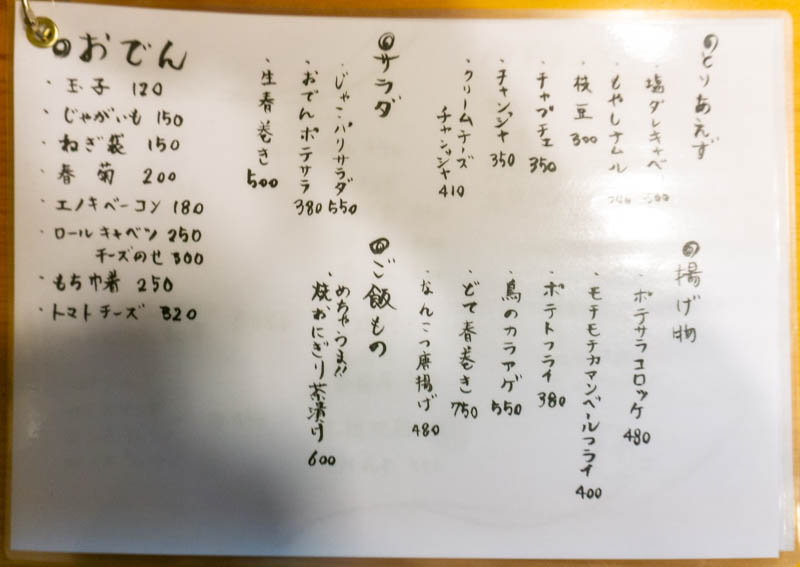 とりあえず
・塩ダレキャベ 300
・もやしナムル
・枝豆 300
・チャプチェ 350
・チャンジャ 350
・クリームチーズ
チャンジャ 410
サラダ
・じゃこパリサラダ 550
・おでんポテサラ 380
・生春巻き 500
おでん
・玉子 120
・じゃがいも 150
・ねぎ袋 150
・春菊 200
・エノキベーコン 180
・ロールキャベツ 250
チーズのせ 300
・もち巾着 250
・トマトチーズ 320
揚げ物
・ポテサラコロッケ 480
・モチモチカマンベールフライ 400
・ポテトフライ 380
・鳥のカラアゲ 550
・どて春巻き 750
・なんこつ唐揚げ 480
ご飯もの
・めちゃうま!!
焼おにぎり茶漬け 600